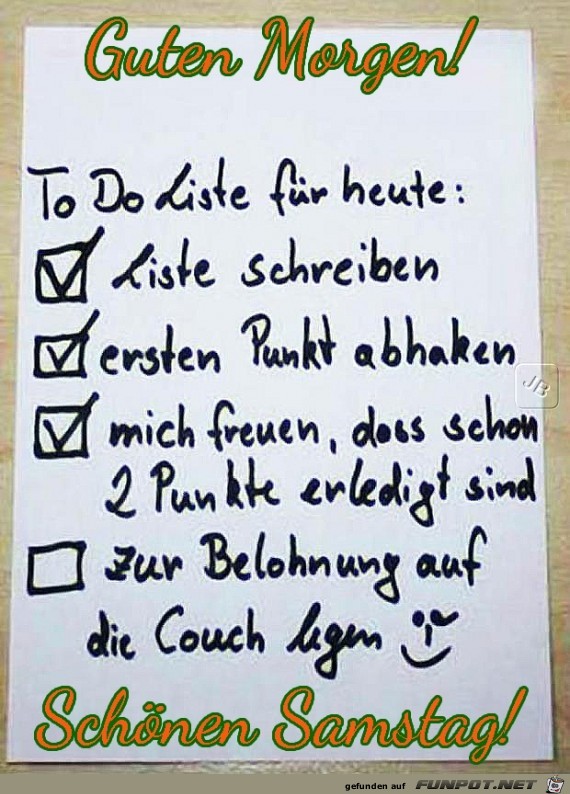 Guten Morgen!
To Do Liste für heute:
Liste schreiben
ersten Punkt abhaken
JB
mich freuen, dass schon
2 Punkte erledigt sind
zur Belohnung auf
die Couch legen
Schönen Samstag!
gefunden auf FUNPOT.NET